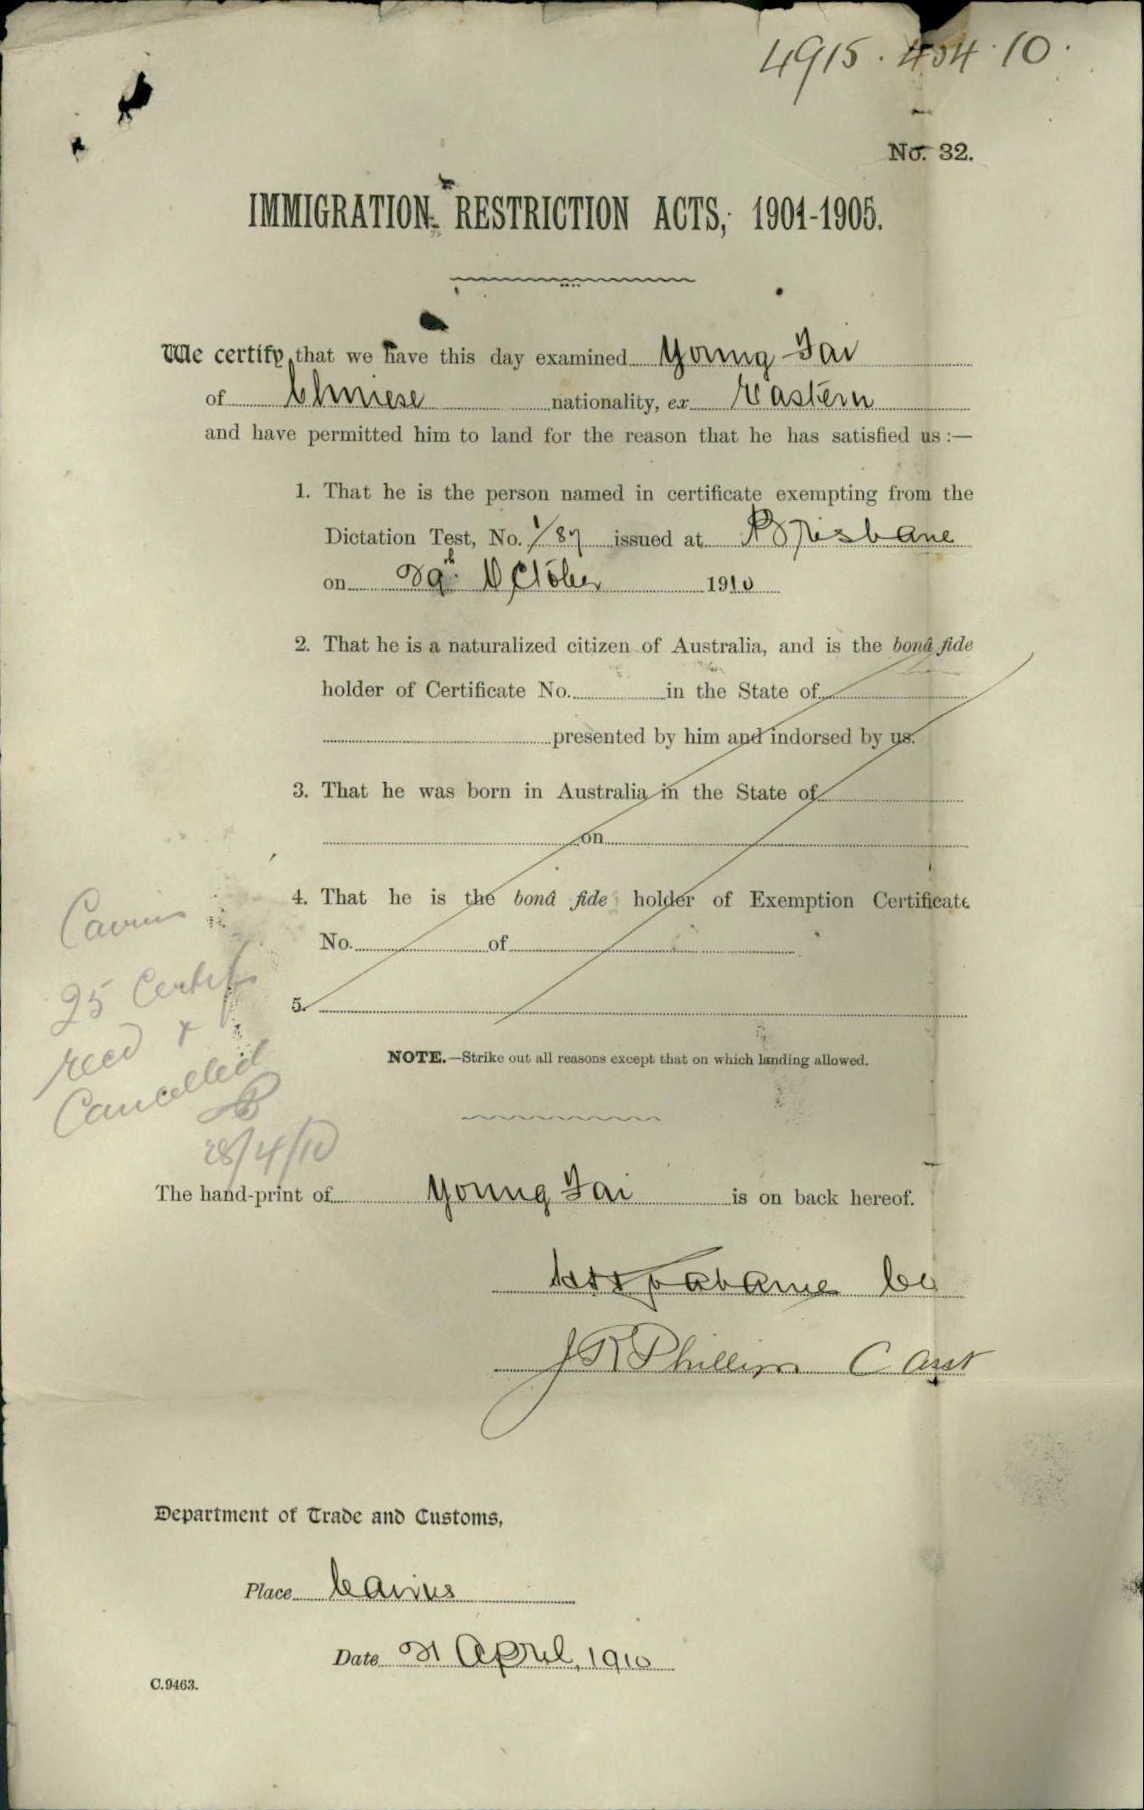 4915.434.10.
No. 32.
IMMIGRATION RESTRICTION ACTS, 1901-1905.
We certify that we have this day examined Young Fai
of Chinese nationality, ex Eastern
and have permitted him to land for the reason that he has satisfied us :—
1. That he is the person named in certificate exempting from the
Dictation Test, No. 1/87 issued at Brisbane
on 29th October 1910
2. That he is a naturalized citizen of Australia, and is the bonâ fide
holder of Certificate No. in the State of
presented by him and indorsed by us.
3. That he was born in Australia in the State of
on
4. That he is the bonâ fide holder of Exemption Certificate
No. of
5.
Cairns
25 Certifs
recd &
Cancelled
28/4/10
NOTE.—Strike out all reasons except that on which landing allowed.
The hand-print of Young Fai is on back hereof.
J R Phillips C Asst
Department of Trade and Customs,
Place Cairns
Date 21 April, 1910
C.9463.